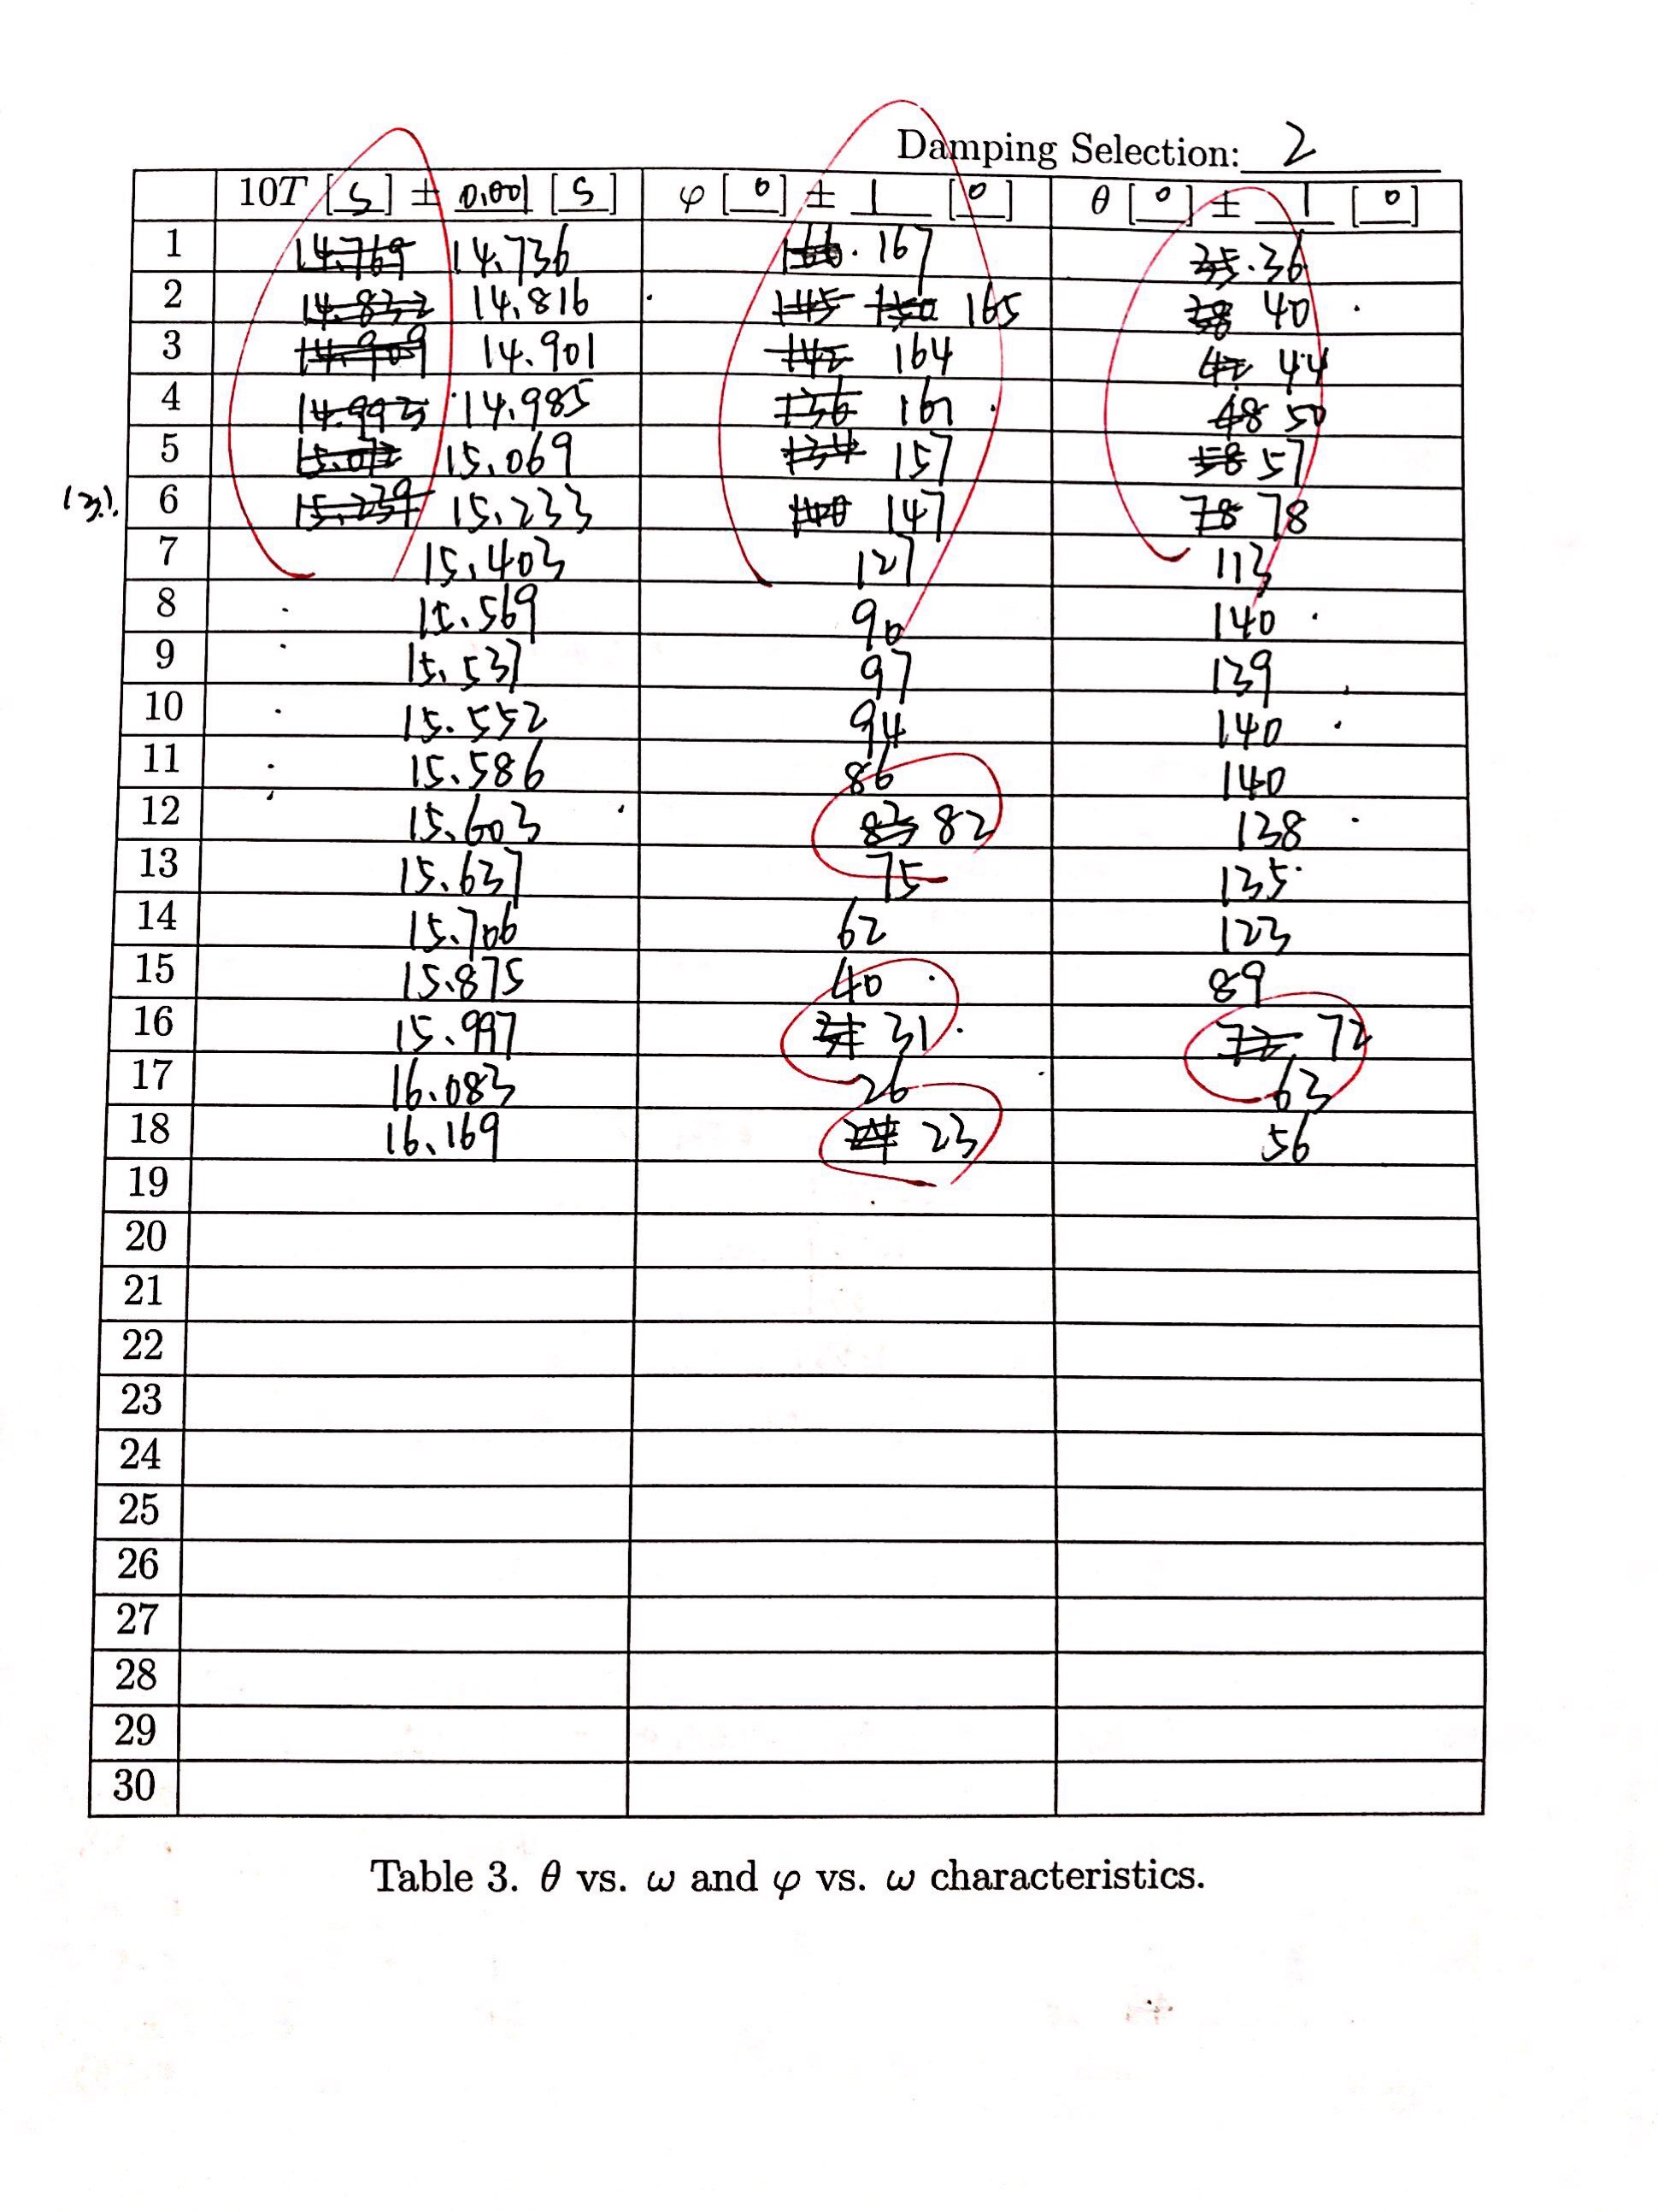 Damping Selection: 2
10T [S] ± 0.001 [S] φ [°] ± 1 [°] θ [°] ± 1 [°]
1 14.769 14.736 166. 167 35. 36
2 14.832 14.816 145 150 165 38 40
3 14.909 14.901 142 164 42 44
4 14.993 14.985 136 161 48 50
5 15.069 134 157 58 57
6 15.239 15.233 140 147 78 78
7 15.403 127 113
8 15.569 90 140
9 15.537 97 139
10 15.552 94 140
11 15.586 86 140
12 15.603 83 82 138
13 15.637 75 135
14 15.706 62 123
15 15.875 40 89
16 15.997 31 72 72
17 16.083 26 63
18 16.169 23 56
19
20
21
22
23
24
25
26
27
28
29
30
Table 3. θ vs. ω and φ vs. ω characteristics.